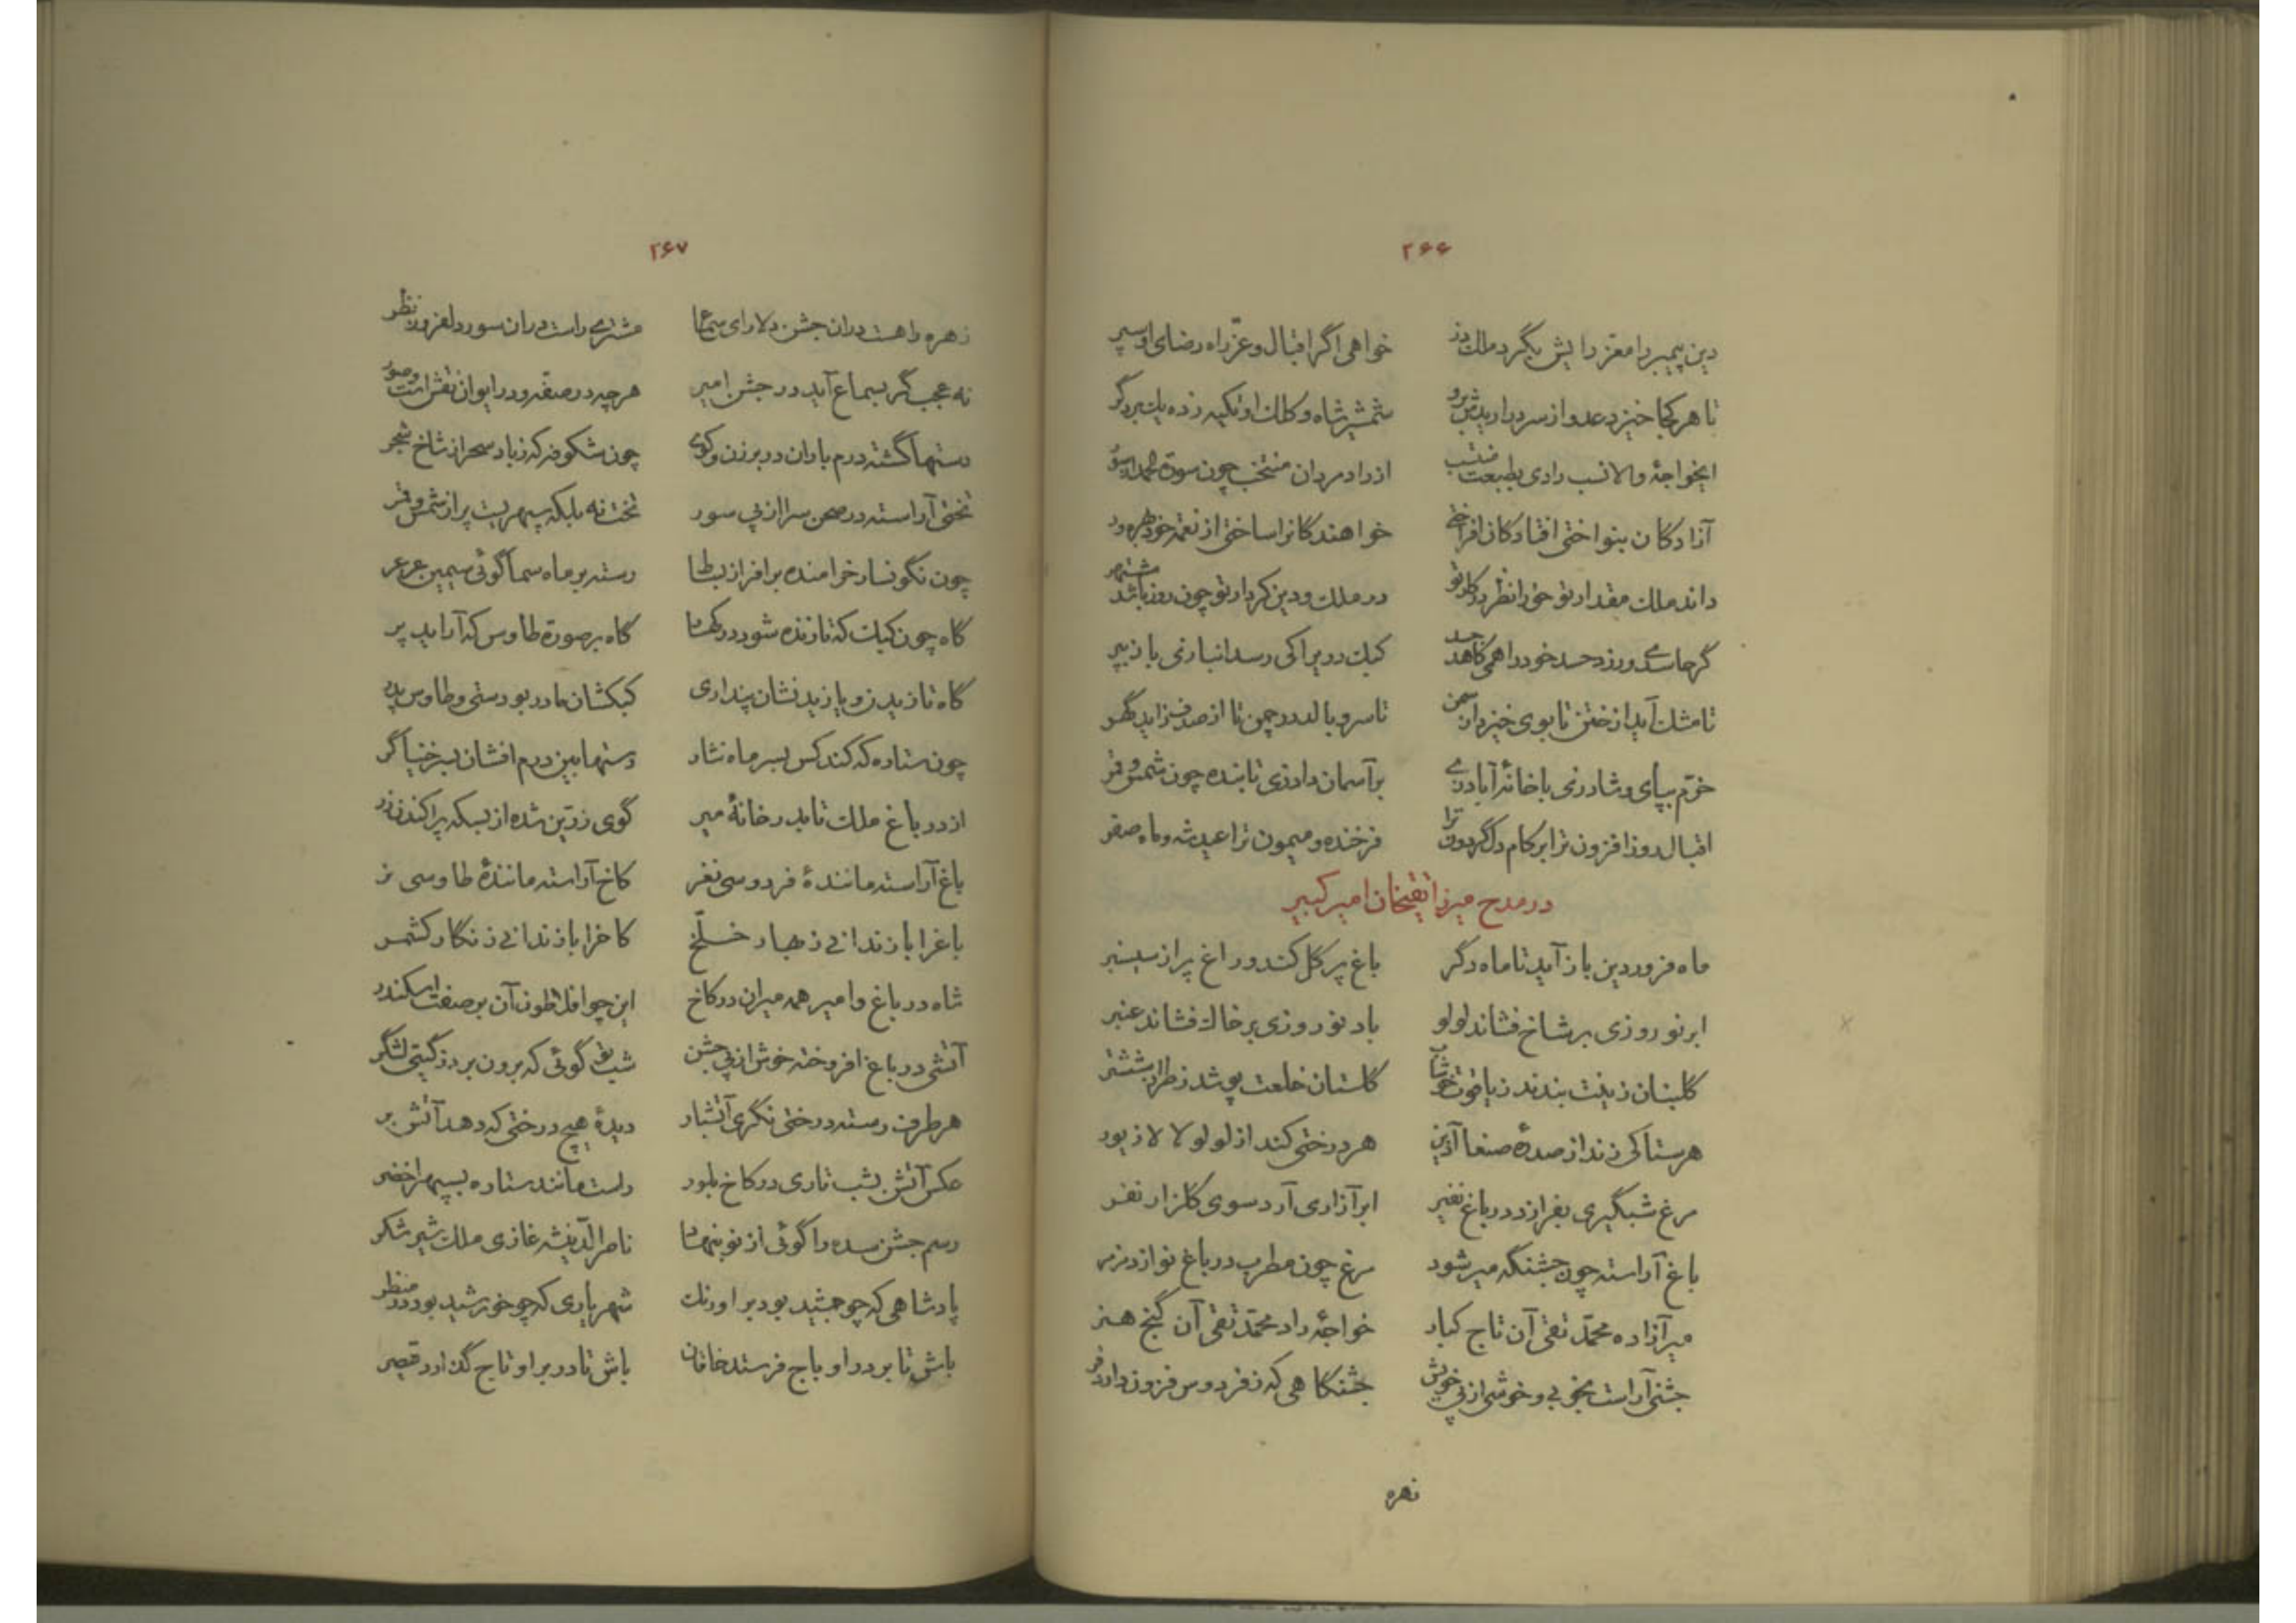 ۲۶۶
دین پیمبر را معز رایش بگرد ملک در خواهی اگر اقبال و عز راه رضای او سپر
تا هر کجا خیزد عدو از سر در اید پیش رو شمشیر شاه و کلک او تکیه زده یک بر دگر
ایخواجهٔ والا نسب رادی بطبیعت منتسب از راد مردان منتخب چون سورة الحمد از سور
آزادکان بنواختی افتادکان افراختی خواهندکانرا ساختی از نعمت خود بهره ور
داند ملک مقدار تو خود را نظر در کار تو در ملک و دین کردار تو چون روز باشد مشتهر
گر حاسدی ورزد حسد خود را همی کاهد جسد کبک دری را کی رسد انبازنی با باز بپر
تا مشک آید از ختن تا بوی خیزد از سمن تا سرو بالد در چمن تا از صدف زاید گهر
خرم بپای و شاد زی با خانهٔ آباد زی بر آسمان داد زی تابنده چون شمس و قمر
اقبال روز افزون ترا بر کام دل گردون ترا فرخنده و میمون ترا عید شه و ماه صفر
در مدح میرزا تقیخان امیر کبیر
ماه فروردین باز آید تا ماه دگر باغ پر گل کند و راغ پر از سیسنبر
ابر نوروزی بر شاخ فشاند لولو باد نوروزی بر خاک فشاند عنبر
گلبنان زینت بندند ز یاقوت خوشاب گلستان خلعت پوشد ز طراز ششتر
هر ستاکی زند از صدرهٔ صنعا آذین هر درختی کند از لولو لالا زیور
مرغ شبگیری بفرازد در باغ نفیر ابر آزاری آرد سوی گلزار نفر
باغ آراسته چون جشنگه میر شود مرغ چون مطرب در باغ نوازد مزمر
میرآزاده محمد تقی آن تاج کبار خواجهٔ راد محمد تقی آن گنج هنر
جشنی آراست بخوبی و خوشی از پی خویش جشنگاهی که ز فردوس فزون دارد فر
زهره
۲۶۷
زهره را هست دران جشن دلارای سماع مشتری راست دران سور دلفروز نظر
نه عجب گر بسماع آید در جشن امیر هر چه در صفه و در ایوان نقش است و صور
دستها گشته درم باران در برزن و کوی چون شکوفه که ز باد سحر از شاخ شجر
تختی آراسته در صحن سرا از پی سور تخت نه بلکه سپهریست پر از شمس و قمر
چون نگونسار خرامنده بر افراز بساط رسته بر ماه سما گوئی سیمین عرعر
گاه چون کبک که تازنده شود در کهسار گاه بر صورة طاوس که آراید پر
گاه تازیدن و یازیدنشان پنداری کبکشان مادر بودستی و طاوس پدر
چون ستاره که کند کس بسر ماه نثار دستها بین درم افشان بسر خنیاگر
از در باغ ملک تا بدر خانهٔ میر گوی زرین شده از بسکه پراکندن زر
باغ آراسته مانندهٔ فردوسی نغز کاخ آراسته مانندهٔ طاوسی نر
باغرا باز ندانی ز بهار خلخ کاخرا باز ندانی ز نگار کشمر
شاه در باغ و امیر همه میران در کاخ این چو افلاطون آن بر صفت اسکندر
آتشی در باغ افروخته خوش از پی جشن شب تو گوئی که برون برد ز گیتی لشگر
هر طرف رسته درختی نگری آتشبار دیدهٔ هیچ درختی که دهد آتش بر
عکس آتش بشب تاری در کاخ بلور راست مانند ستاره بسپهر اخضر
رسم جشن سده را گوئی از نو بنهاد ناصرالدینشه غازی ملک شیر شکر
پادشاهی که چو جمشید بود بر اورنک شهریاری که چو خورشید بود در منظر
باش تا بر در او باج فرستد خاقان باش تا در بر او تاج گذارد قیصر